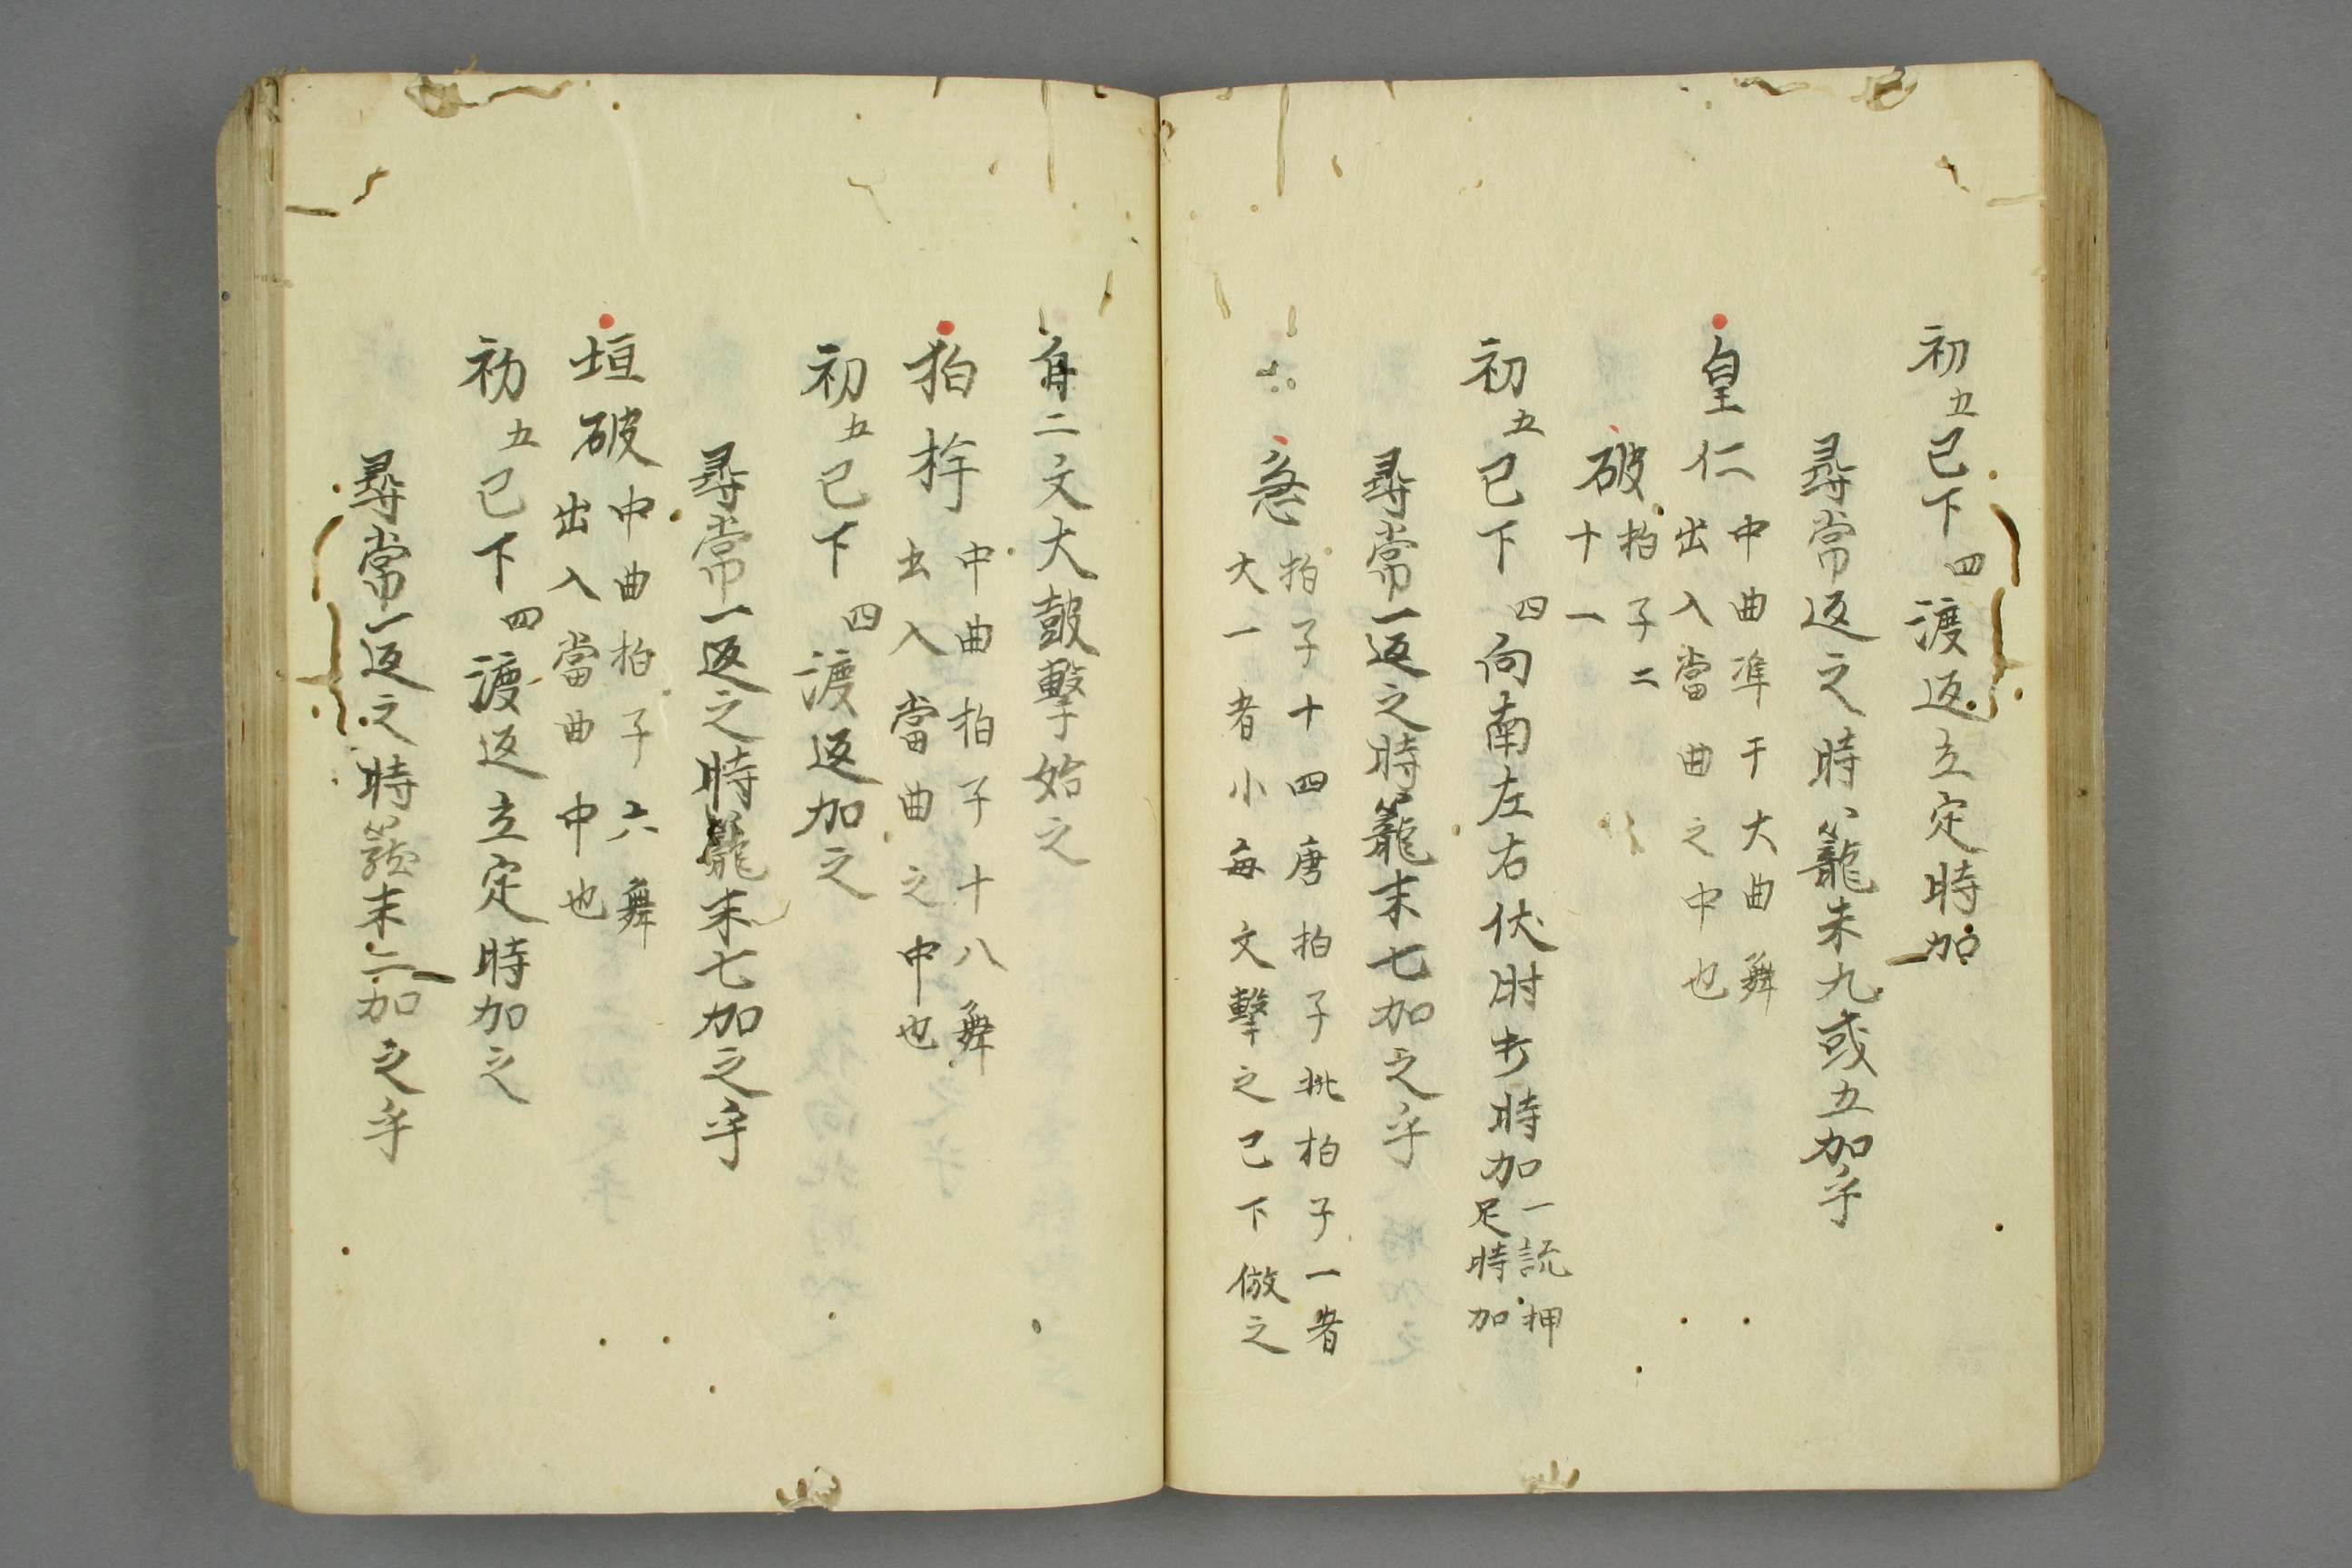 初五已下四渡返立定時加
尋常返之時籠末九或五加乎
皇仁中曲准干大曲舞
出入當曲之中也
破拍子二
十一
初五已下四向南左右伏肘步時加一説押
足時加
尋常一返之時籠末七加之乎
急拍子十四唐拍子批拍子一者
大一者小每文擊之已下倣之
自二文大皷擊始之
狛桙中曲拍子十八舞
出入當曲之中也
初五已下四渡返加之
尋常一返之時籠末七加之乎
垣破中曲拍子六舞
出入當曲中也
初五已下四渡返立定時加之
尋常一返之時籠末二加之乎